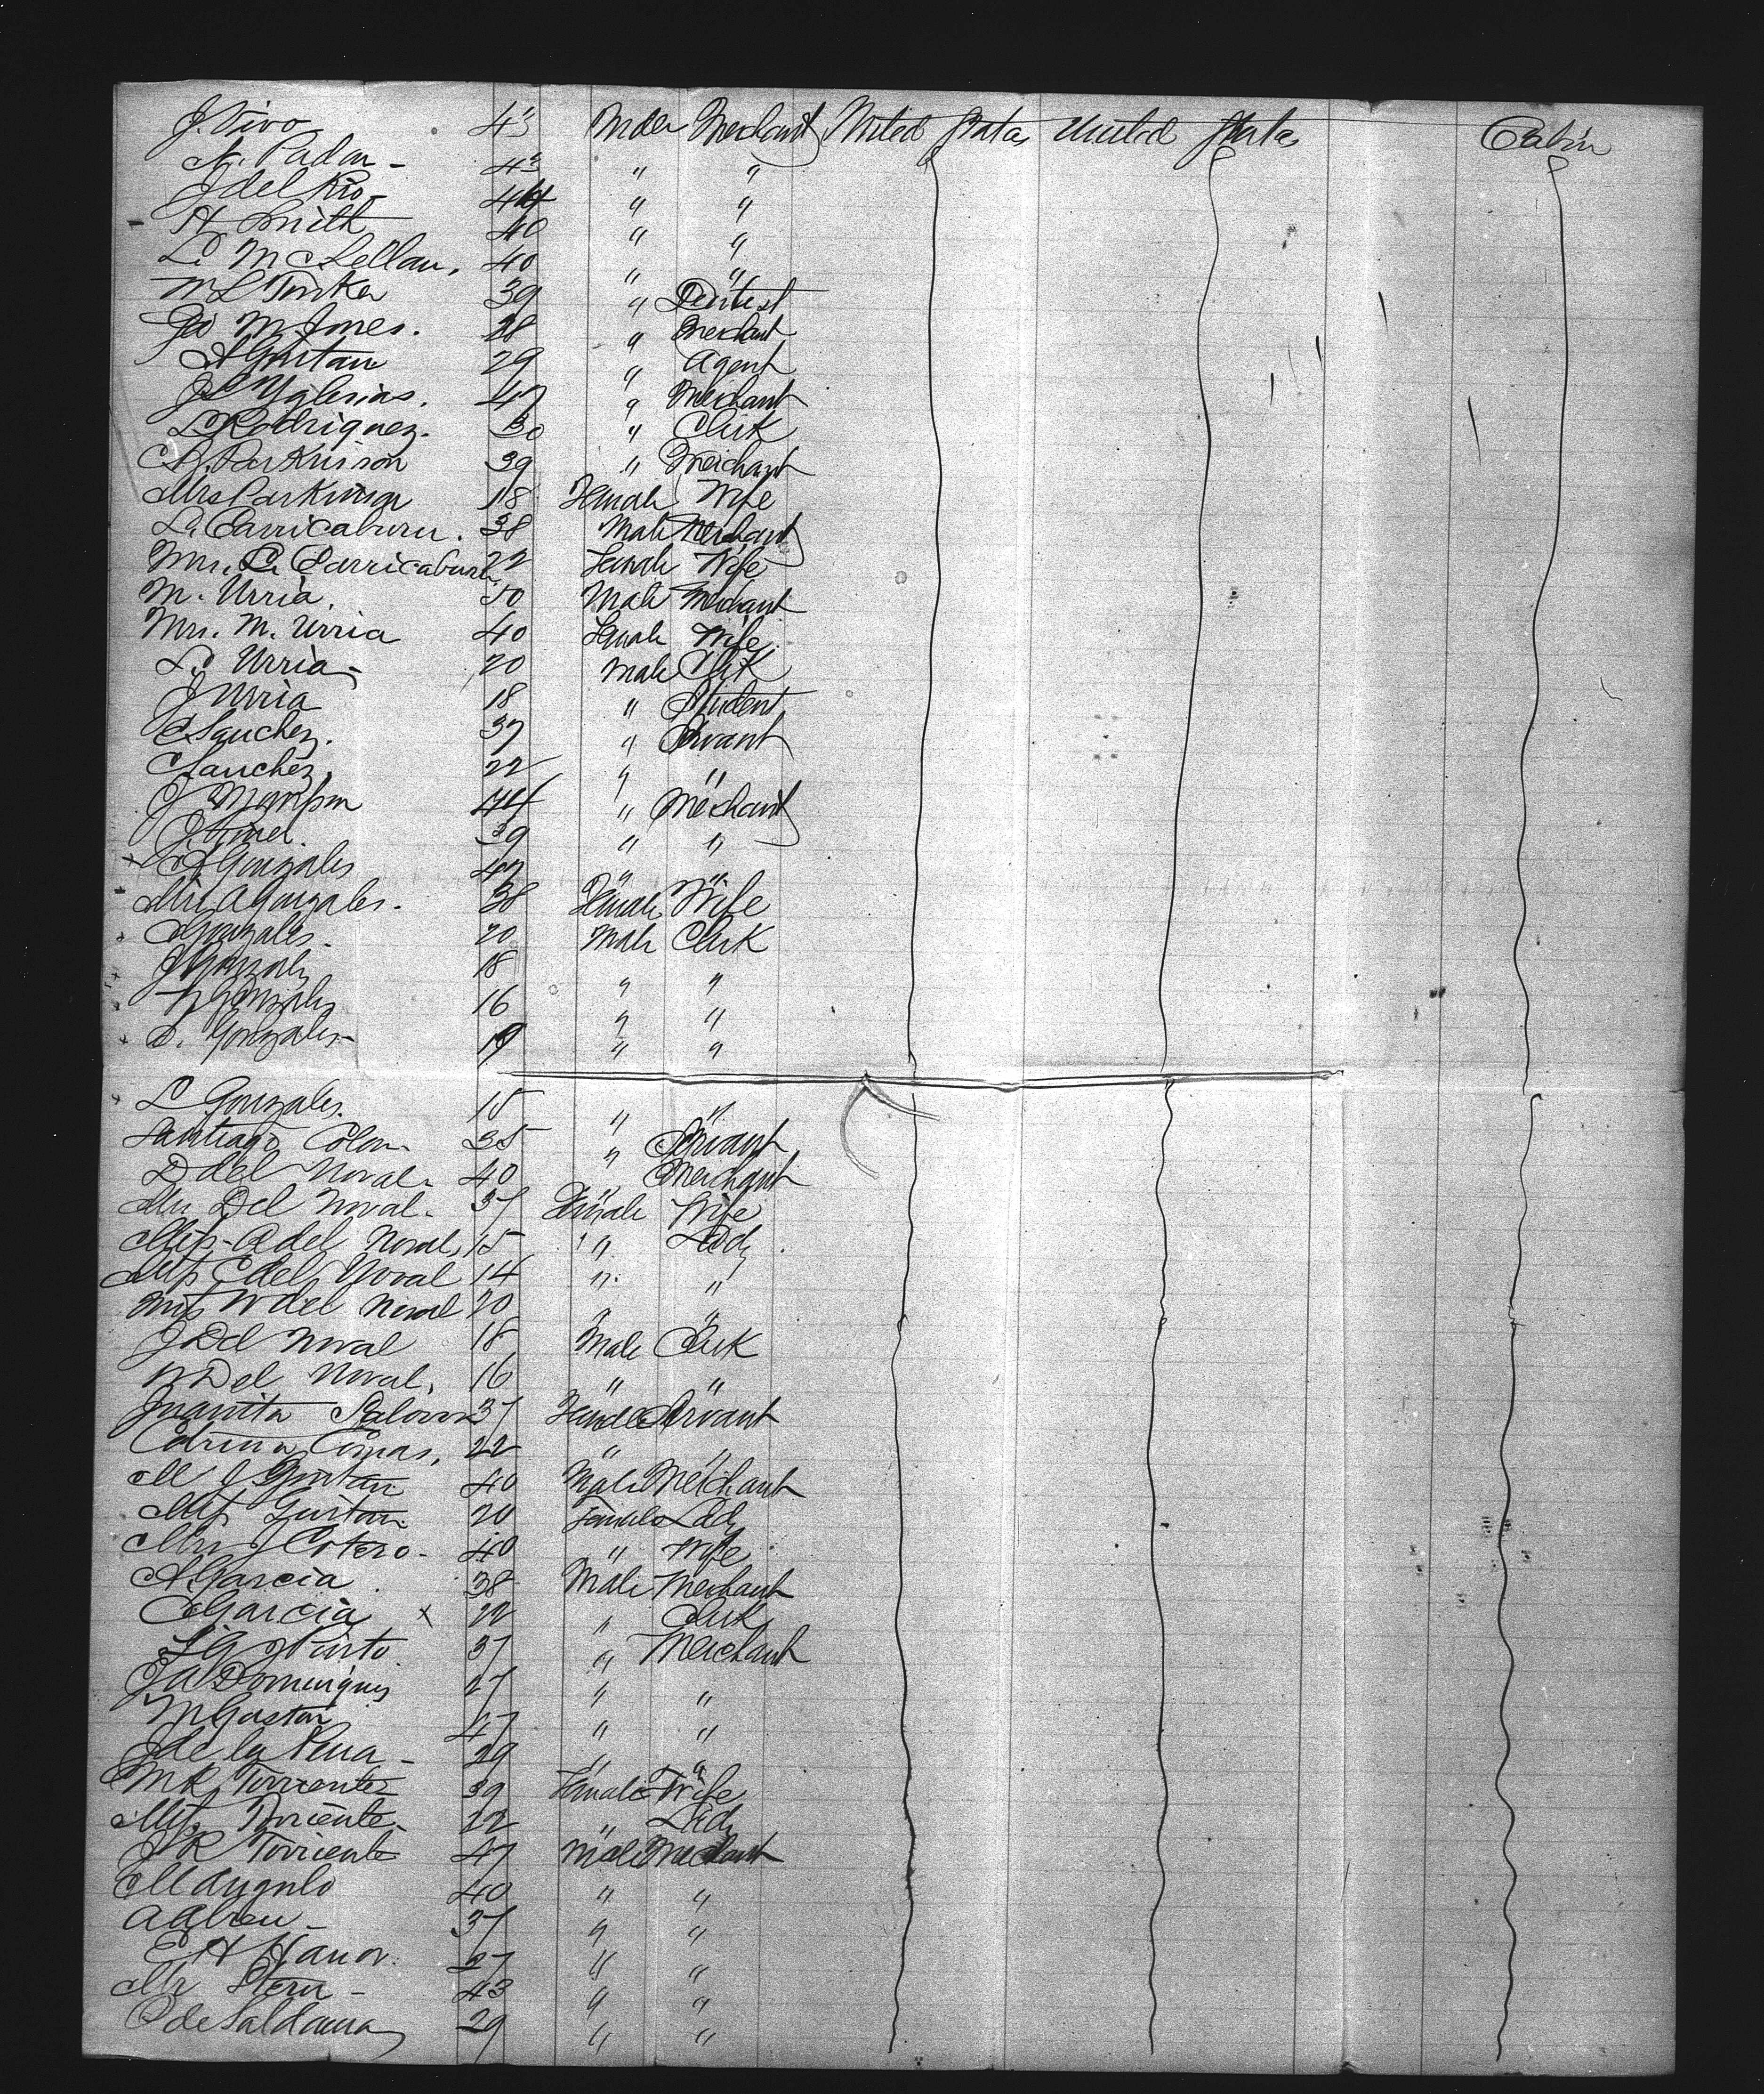 J. Vivo 43 Male Merchant United States United States Cabin
N. Padan - 43 " "
J del Rio - 44 " "
H Smith 40 " "
L. McLellan. 40 " "
M L Tinker 39 " Dentist
Geo M Jones. 28 " Merchant
A Guitan 29 " Agent
J Yglesias. 47 " Merchant
L Rodriguez. 30 " Clerk
Parkinson 39 " Merchant
Mrs Parkinson 18 Female Wife
L. Barricaburu. 38 Male Merchant
Mrs. L. Barricaburu 22 Female Wife
M. Urria. 50 Male Merchant
Mrs. M. Urria 40 Female Wife
L. Urria - 20 Male Clerk
J Urria 18 " Student
C Sanchez. 37 " Servant
Sanchez. 22 " "
J 44 " Merchant
J 39 " "
x A Gonzales 47 " "
Mrs A Gonzales. 38 Female Wife
Gonzales. 20 Male Clerk
J Gonzales 18 " "
N Gonzales 16 " "
S. Gonzales - 19 " "
L Gonzales. 15 " "
Santiago Colon. 35 " Servant
D del Noval. 40 " Merchant
Mrs Del Noval. 37 Female Wife
Miss A del Noval, 15 " Lady
Miss C del Noval 14 " "
Miss N del Noval 20 " "
J Del Noval 18 Male Clerk
N Del Noval, 16 " "
Juanita 37 Female Servant
22 " "
M J Guitan 40 Male Merchant
Miss Guitan 20 Female Lady
Mrs J Cotero - 40 " Wife
A Garcia 38 Male Merchant
C Garcia x 22 " Clerk
37 " Merchant
J A Dominguez 27 " "
M Gastan 47 " "
J de la Pena - 29 " "
M R Torriente 39 Female Wife
Miss Torriente - 22 " Lady
J R Torriente 47 Male Merchant
M Angulo 40 " "
A Abreu - 37 " "
E H 27 " "
Mr Stern - 43 " "
C de Saldana 29 " "